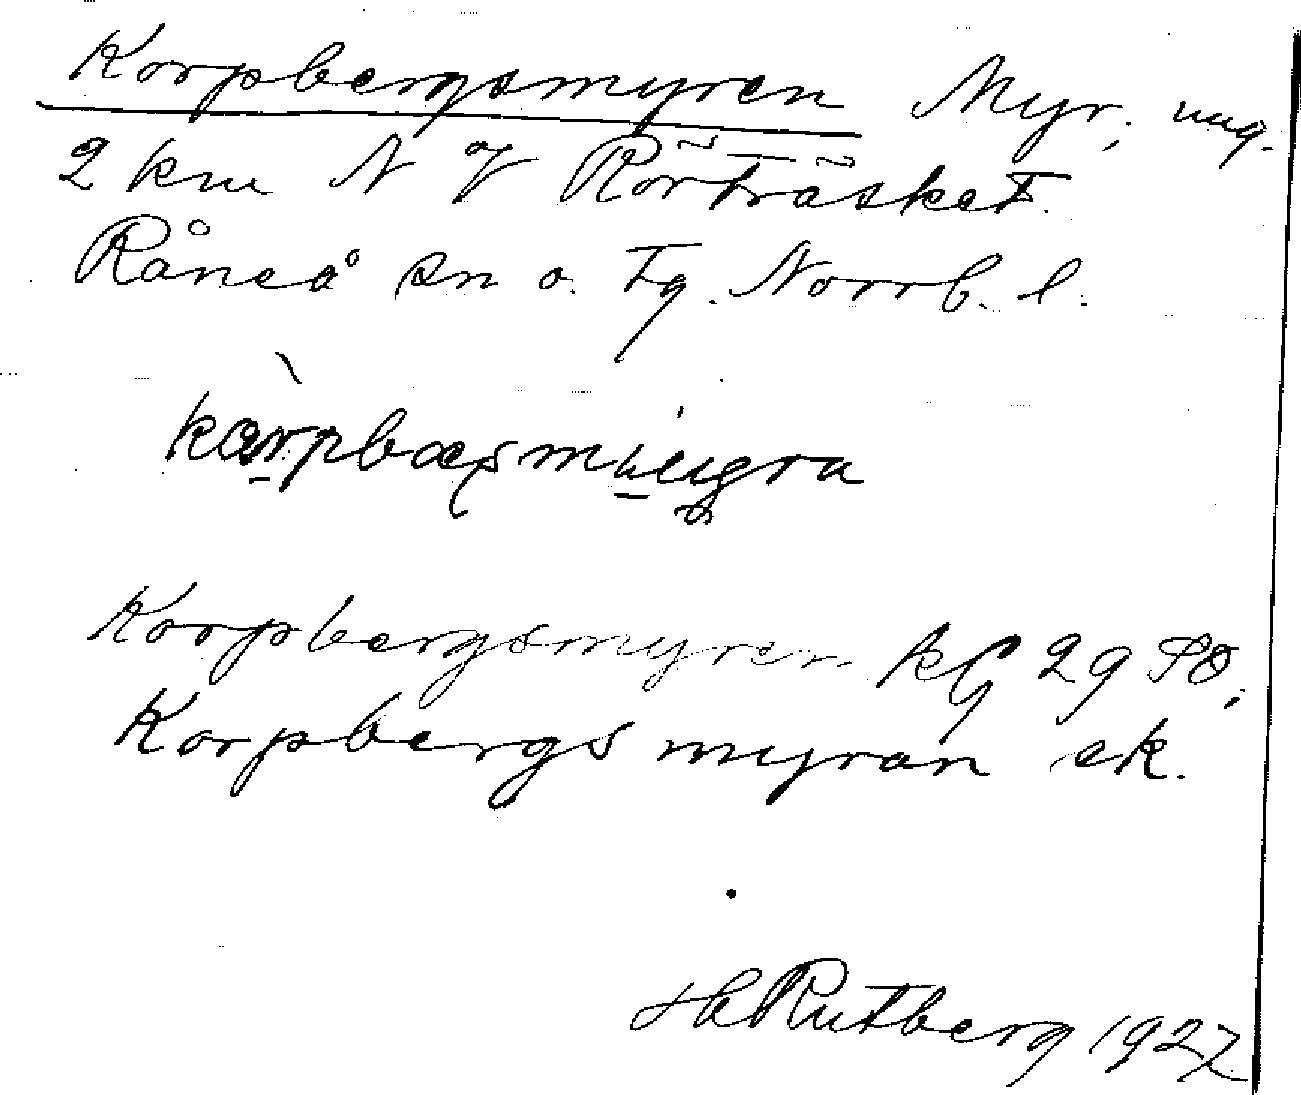 Korpbergsmyren Myr, ung.
2 km N af Rörträsket.
Råneå sn o. tg. Norrb. l.
Korpbergsmyren kG 29 SO,
Korpbergs myran ek.
Rutberg 1927